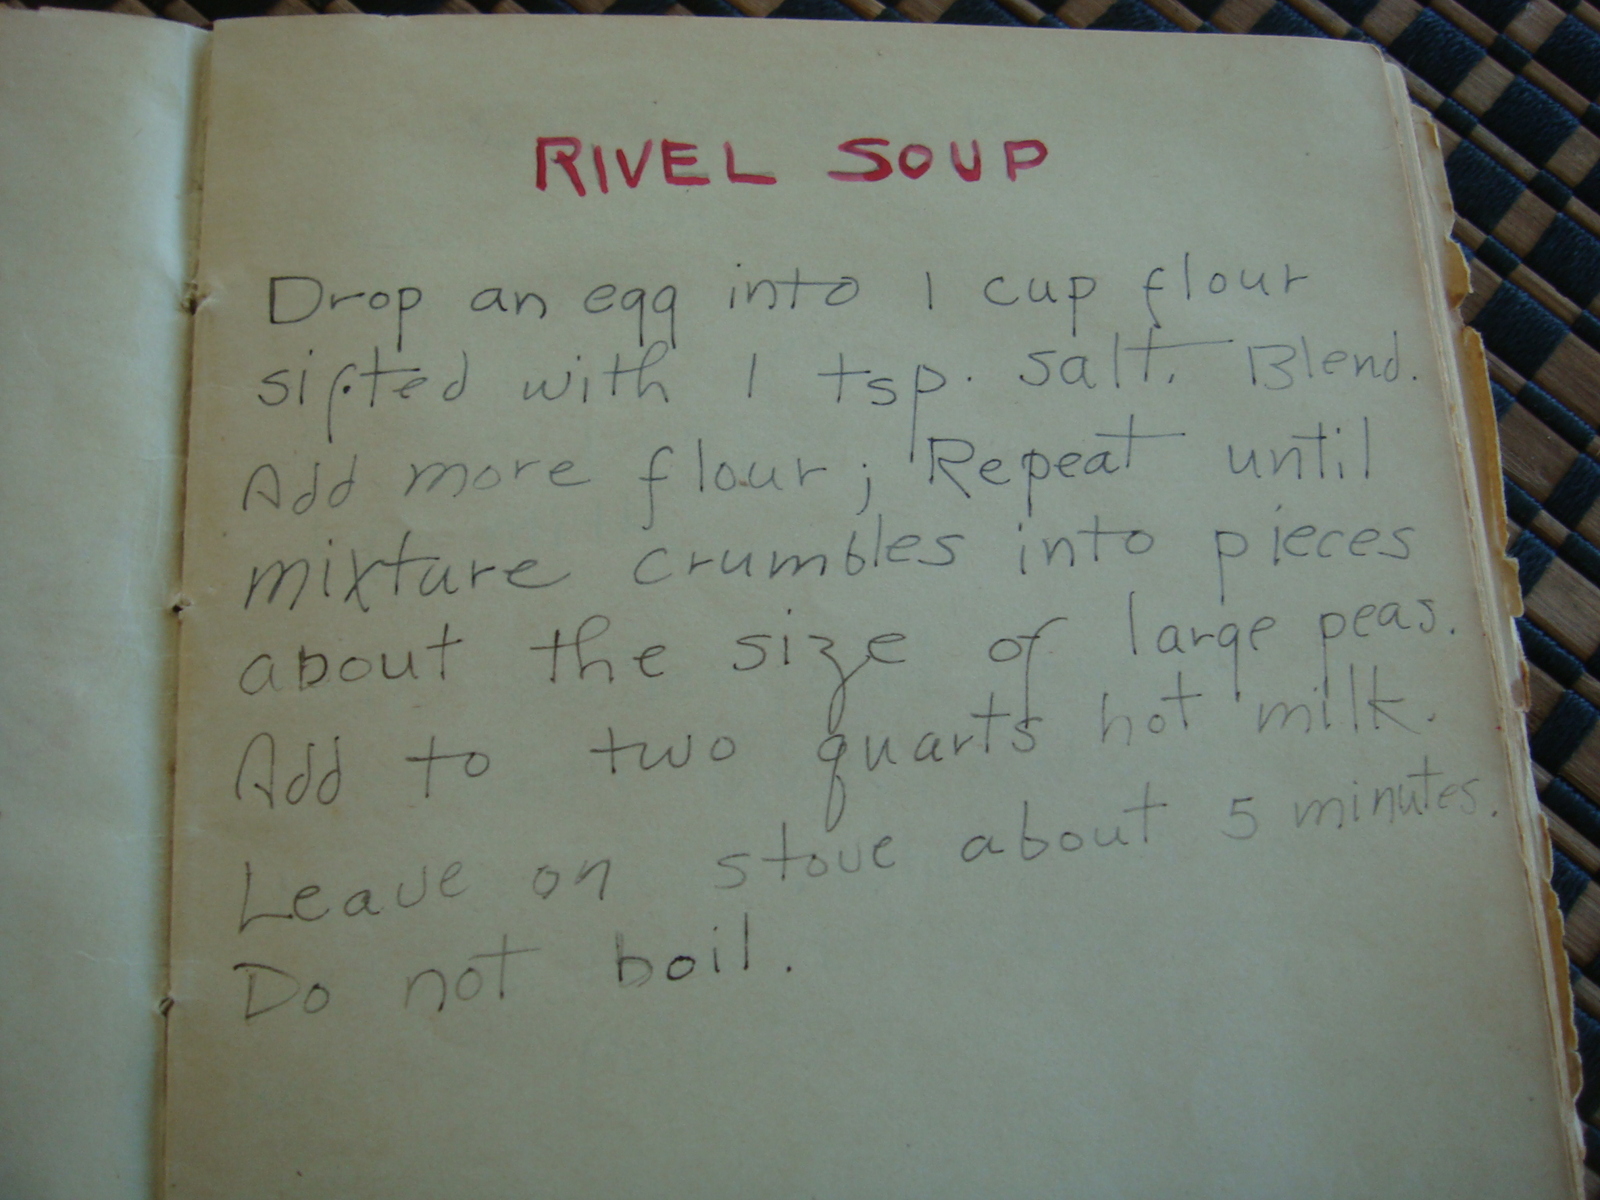 RIVEL SOUP
Drop an egg into 1 cup flour
sifted with 1 tsp. salt. Blend.
Add more flour; Repeat until
mixture crumbles into pieces
about the size of large peas.
Add to two quarts hot milk.
Leave on stove about 5 minutes.
Do not boil.